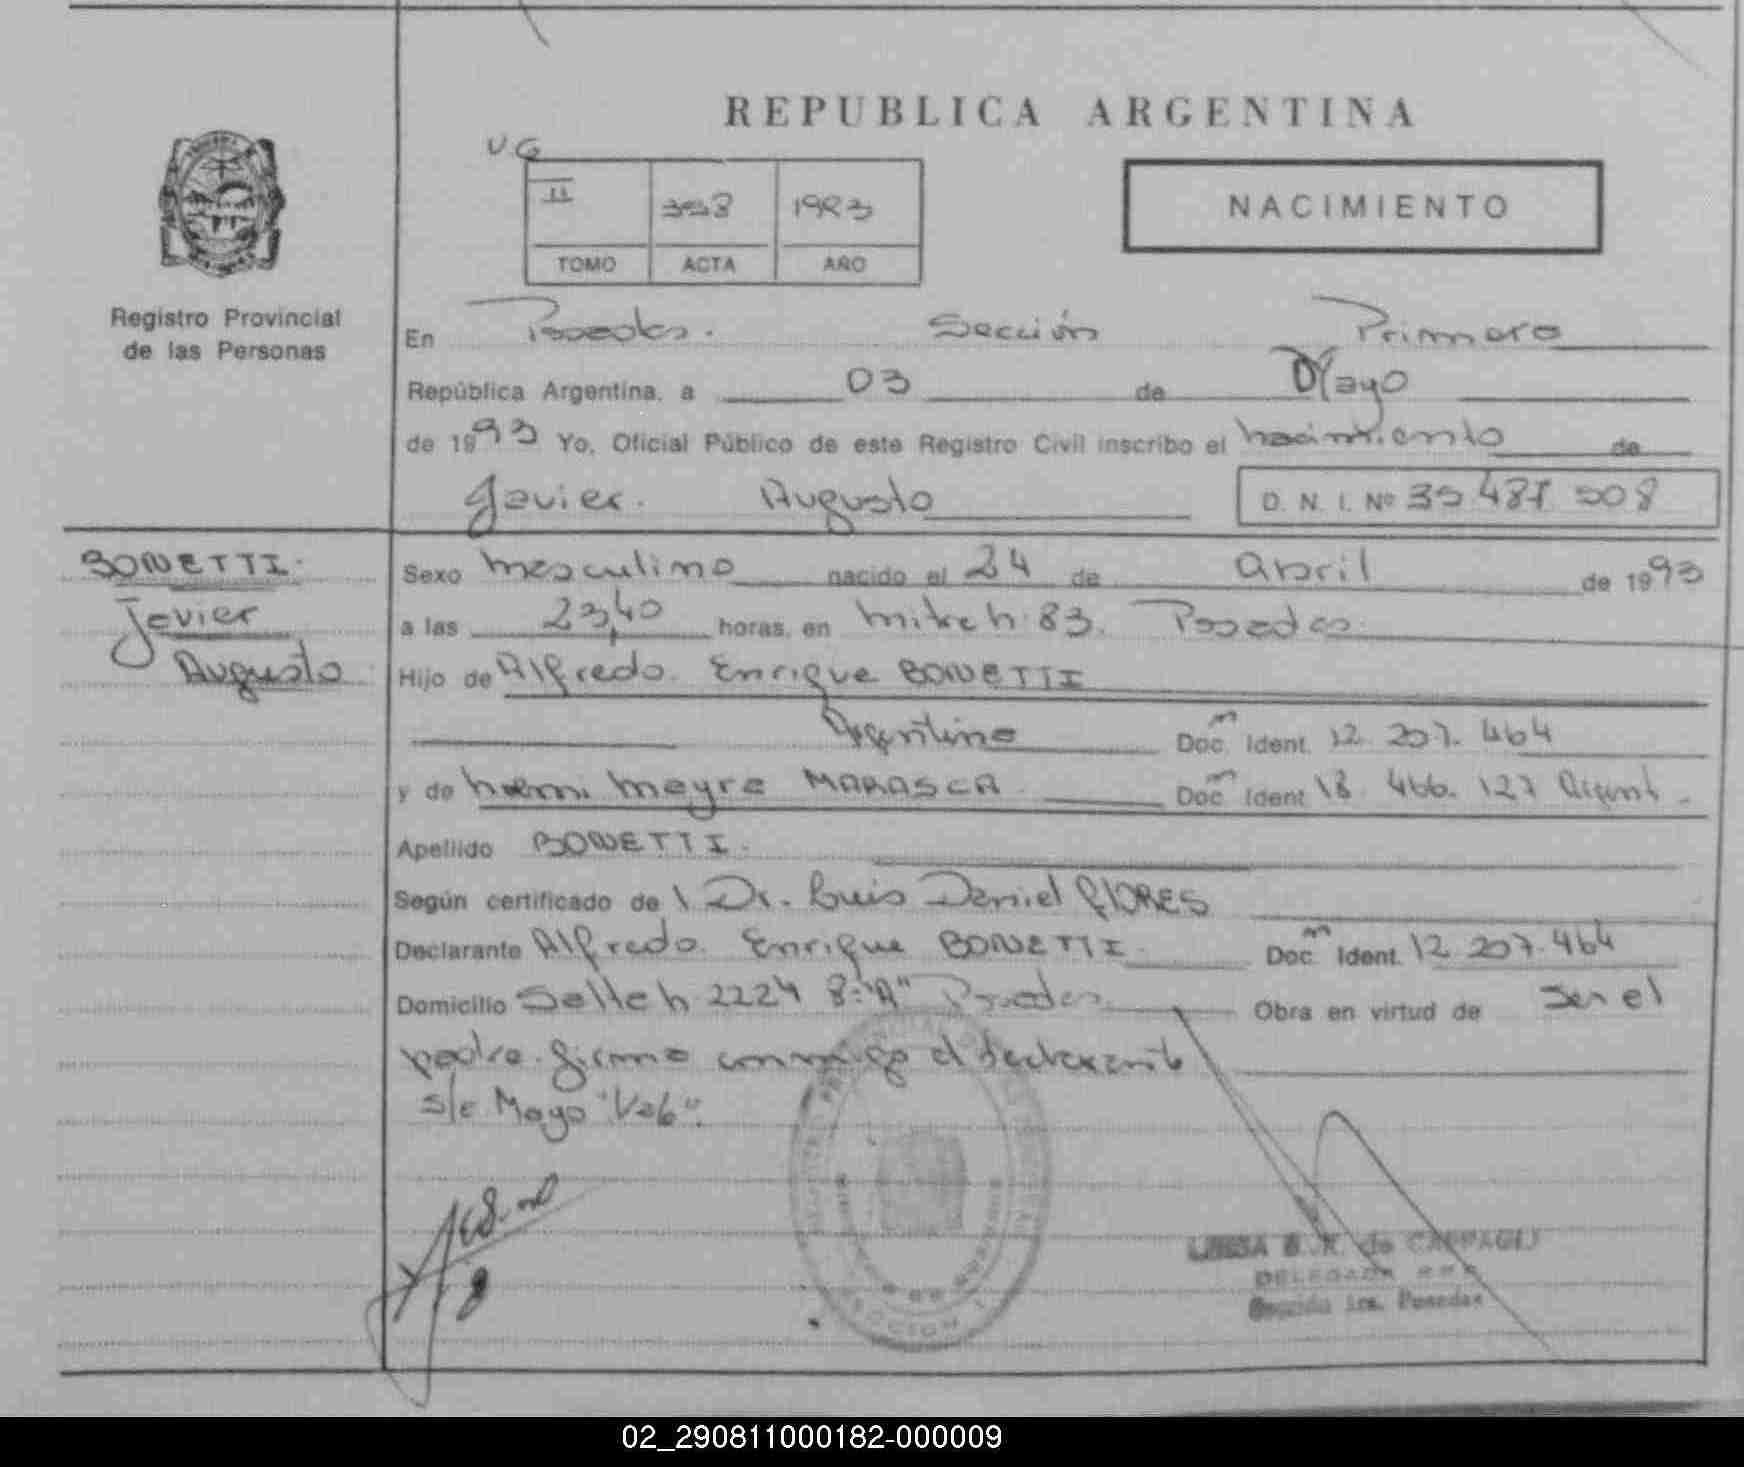 REPUBLICA ARGENTINA
UG
II 398 1993
TOMO ACTA AÑO
NACIMIENTO
Registro Provincial
de las Personas
En Posadas. Sección Primera
República Argentina, a 03 de Mayo
de 1993 Yo, Oficial Público de este Registro Civil inscribo el nacimiento de
Javier. Augusto D. N. I. Nº 35 487 508
BONETTI.
Javier
Augusto
Sexo masculino nacido el 24 de abril de 1993
a las 23,40 horas, en Posadas
Hijo de Alfredo Enrique BONETTI
Argentino Doc. Ident. 12. 207. 464
y de MARASCA Doc. Ident 18. 466. 127 Argent.
Apellido BONETTI.
Según certificado de l Dr. Luis Daniel FLORES
Declarante Alfredo. Enrique BONETTI. Doc. Ident. 12. 207. 464
Domicilio 2224 8: "A" Posadas. Obra en virtud de ser el
padre. firma conmigo el declarante
s/e. Mayo "Vale".
de CARPAGIJ
DELEGADA
Sección 1ra. Posadas
02_290811000182-000009